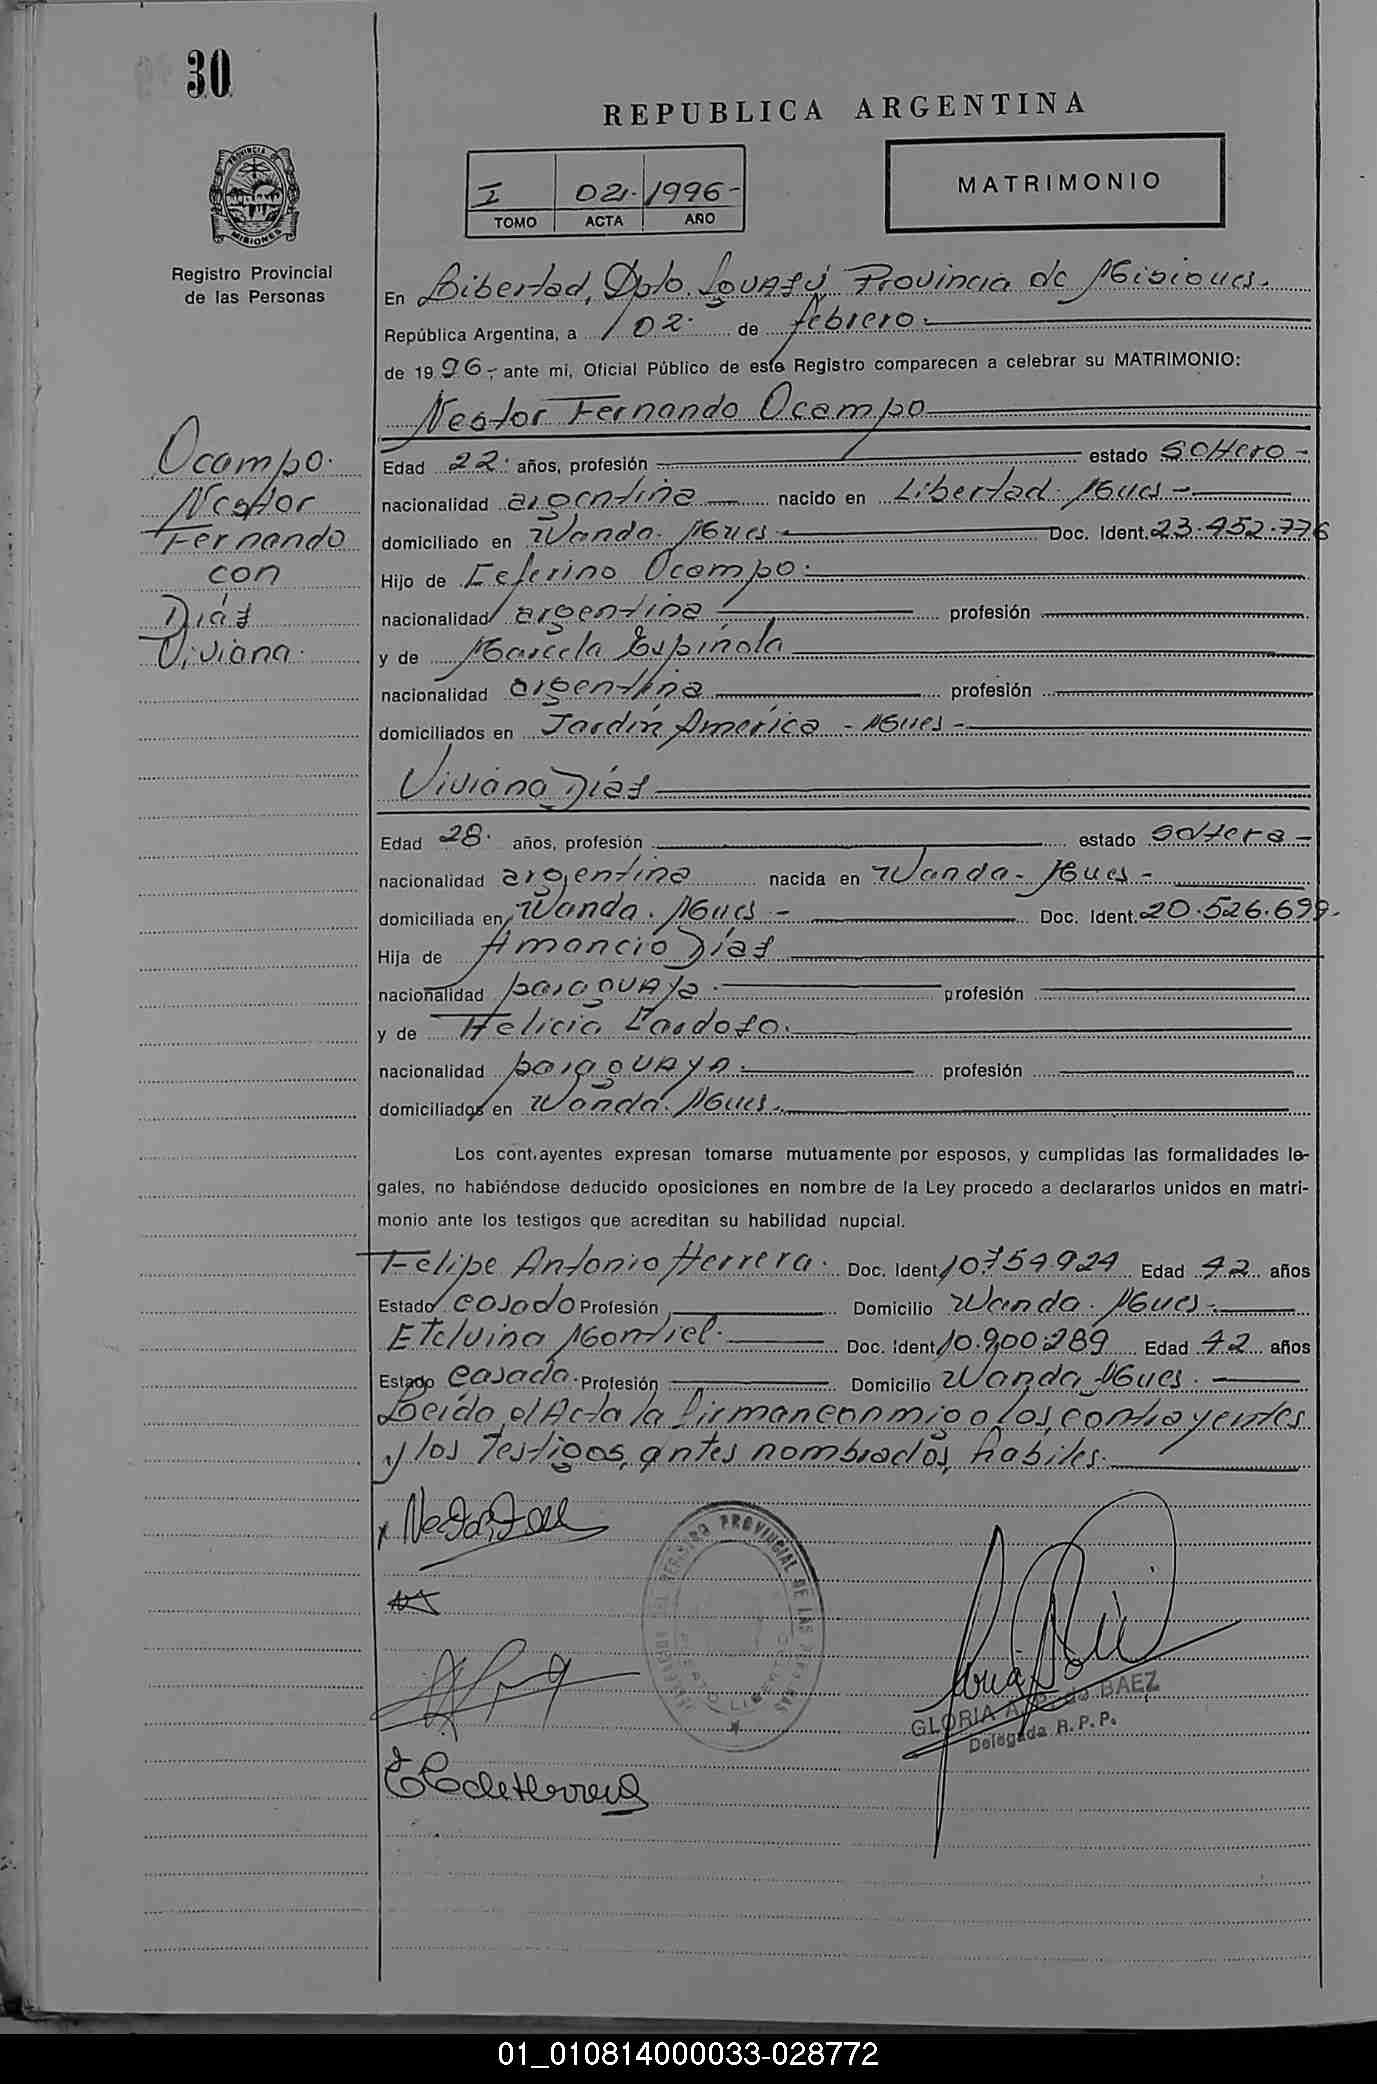 30
REPUBLICA ARGENTINA
I 02 1996-
TOMO ACTA AÑO
MATRIMONIO
PROVINCIA DE
MISIONES
Registro Provincial
de las Personas
En Libertad, Dpto. Iguazú Provincia de Misiones.
República Argentina, a 02 de febrero.
de 1996, ante mi, Oficial Público de este Registro comparecen a celebrar su MATRIMONIO:
Nestor Fernando Ocampo
Ocampo
Nestor
Fernando
con
Diáz
Viviana.
Edad 22 años, profesión estado soltero-
nacionalidad argentina nacido en Libertad. Mnes-
domiciliado en Wanda. Mnes Doc. Ident. 23.452.776
Hijo de Ceferino Ocampo.
nacionalidad argentina profesión
y de Marcela Espínola
nacionalidad argentina profesión
domiciliados en Jardín America - Mnes-
Viviana Díaz
Edad 28. años, profesión estado soltera-
nacionalidad argentina nacida en Wanda- Mnes-
domiciliada en Wanda. Mnes- Doc. Ident. 20.526.699-
Hija de Amancio Díaz
nacionalidad paraguaya. profesión
y de Felicia Cardozo.
nacionalidad paraguaya. profesión
domiciliados en Wanda. Mnes.
Los cont.ayentes expresan tomarse mutuamente por esposos, y cumplidas las formalidades le-
gales, no habiéndose deducido oposiciones en nombre de la Ley procedo a declararlos unidos en matri-
monio ante los testigos que acreditan su habilidad nupcial.
Felipe Antonio Herrera. Doc. Ident. 10.754.924 Edad 42 años
Estado casado Profesión Domicilio Wanda. Mnes-
Etelvina Montiel. Doc. Ident. 10.900.289 Edad 42 años
Estado Casada. Profesión Domicilio Wanda Mnes.
Leida el Acta la firman conmigo los contrayentes
y los testigos, antes nombrados, habiles.
REGISTRO PROVINCIAL DE LAS
LIBERTAD
GLORIA A. P. de BAEZ
Delegada R. P. P.
01_010814000033-028772